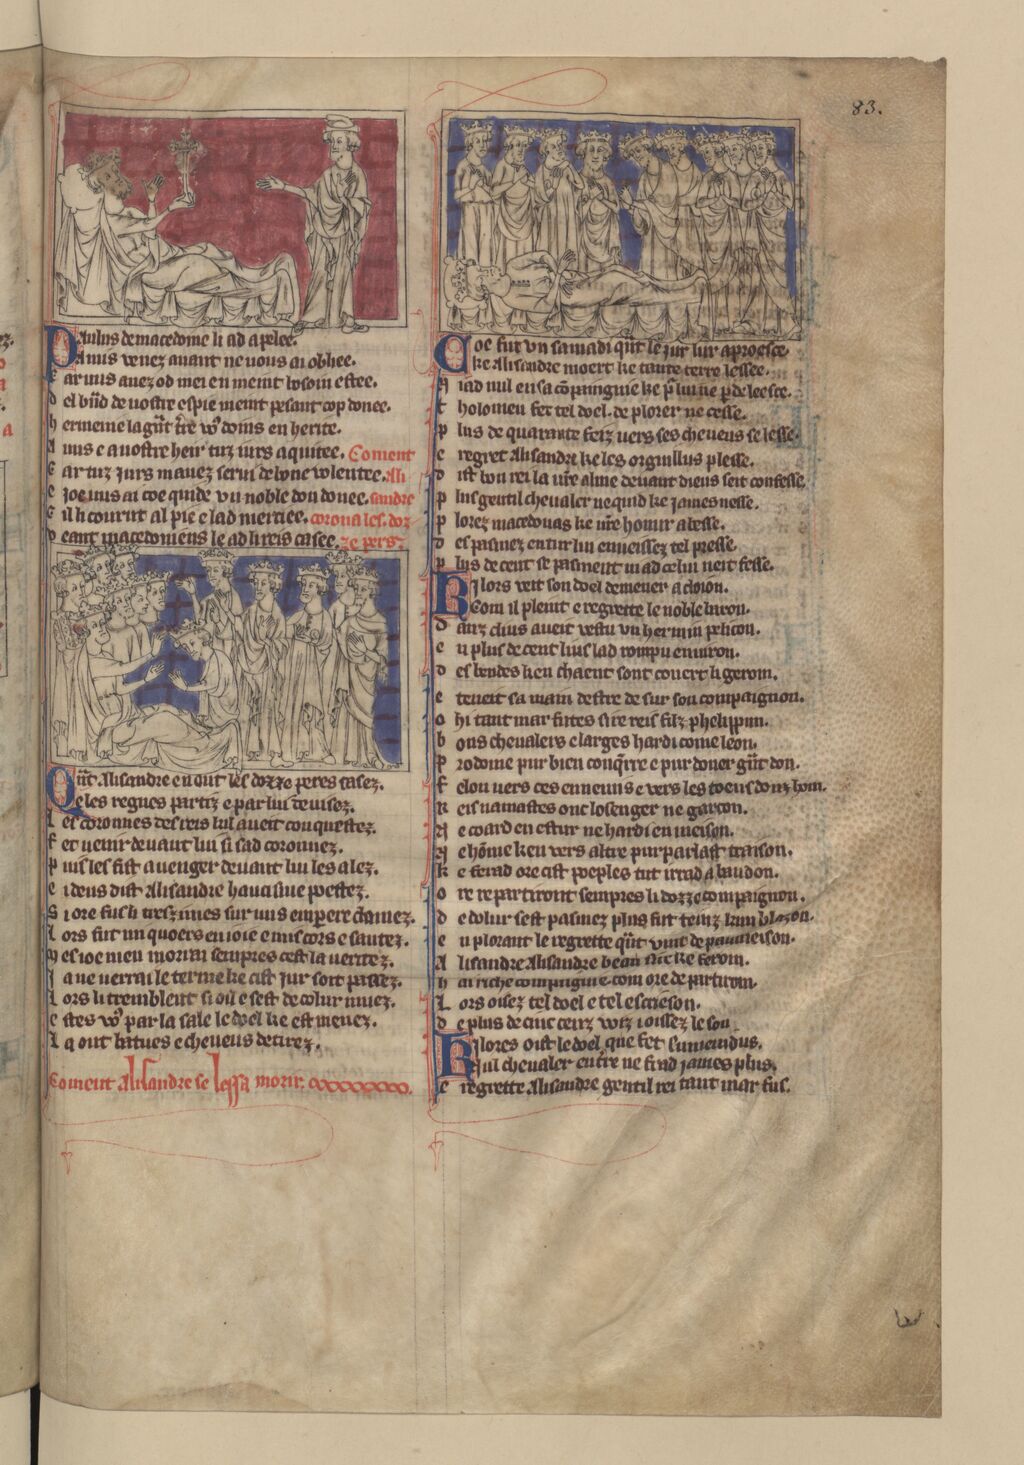 83.
Paulus de macedoine li ad apelee.
Amis venez auant ne uous ai obliee.
e ar mis auez od mei en meint bosoin estee.
d el bñd de uostre espie meint pesant cop donee.
h ermenie la gñt t̃re vꝰ doins en herite.
A mis e a uostre heir tuz iurs aquitee. Coment
c ar tuz jurs mauez serui de bone volentee. Ali
e joe uus ai coe quide vn noble don donee. sandre
c il li courut al pie e lad merciee. corona les doz
d eant macedoniens le ad li reis casee. ze pers.
Qñt Alisandre en out les dozze peres casez.
E les regnes partiz e par lui deuisez.
L es coronnes des reis kil aueit conquestez.
f et uenir deuant lui si sad coronnez.
p uis les fist auenger deuant lui les alez.
e ideus dist Alisandre hautisme poestez.
S i ore fuih tresz mies sur uus empere clamez.
L ors fut un quoers en ioie e mis cors e sautez.
M es ioe men morrai sempres cest la veritez.
J a ne uerrai le terme ke cist jur soit passez.
L ors li tremblent si oil e sest de colur muez.
e stes vꝰ par la sale le doel ke est menez.
L a out batues e cheueus detirez.
Coment alisandre se lessa morir.
Coe fut vn samadi qñt le jur lur aproesce.
ke Alisandre moert ke taute terre lessee.
N iad nul en sa cõpaingnie ke p̃ lui ne p̃de leesce.
t holomeu fet tel doel. de plorer ne cesse.
p lus de quarante feiz uers ses cheueus se lesse.
e regret Alisandre ke les orguillus plesse.
d ist bon rei la ur̃e alme deuant dieus seit confesse.
p lus gentil cheualer ne quid ke james nesse.
p lorez macedonas ke ur̃e honur abesse.
d es pasmez entur lui enueissez tel presse.
p lus de cent se pasment iu ad celui neit fesse.
Ki lors veit son doel demener a clicon.
Com il pleint e regrette le noble baron.
D anz clius aueit vestu vn hermin pelicon.
e n plus de cent lius lad rompu enuiron.
d es bendes ken chaent sont couert li gerom.
e teneit sa main destre de sur son compaignon.
o hi tant mar fustes sire reis filz phelippun.
b ons cheualers e larges hardi come leon.
P rodome pur bien conq̃rre e pur doner gñt don.
f elou uers ces ennemis e vers les toens douz hom.
R eis n amastes onc losenger ne garcon.
N e coard en estur ne hardi en meison.
N e hõme ken vers altre purparlast traison.
K e ferad ore cist poeples tut irrad a bandon.
o re repartiront sempres li dozze compaignon.
d e dolur sest pasmez plus fut teinz kun blazon.
e n plorant le regrette qñt vint de paumeison.
A lisandre Alisandre beau sire ke ferom.
h ai riche compaignie com ore departirom.
L ors oisez tel doel e tel escrieson.
d e plus de cinc cenz voiz i oissez le son.
Ki lores oist le doel que fet Emenidus.
Nul cheualer entr̃e ne frad james plus.
e regrette Alisandre gentil rei tant mar fus.